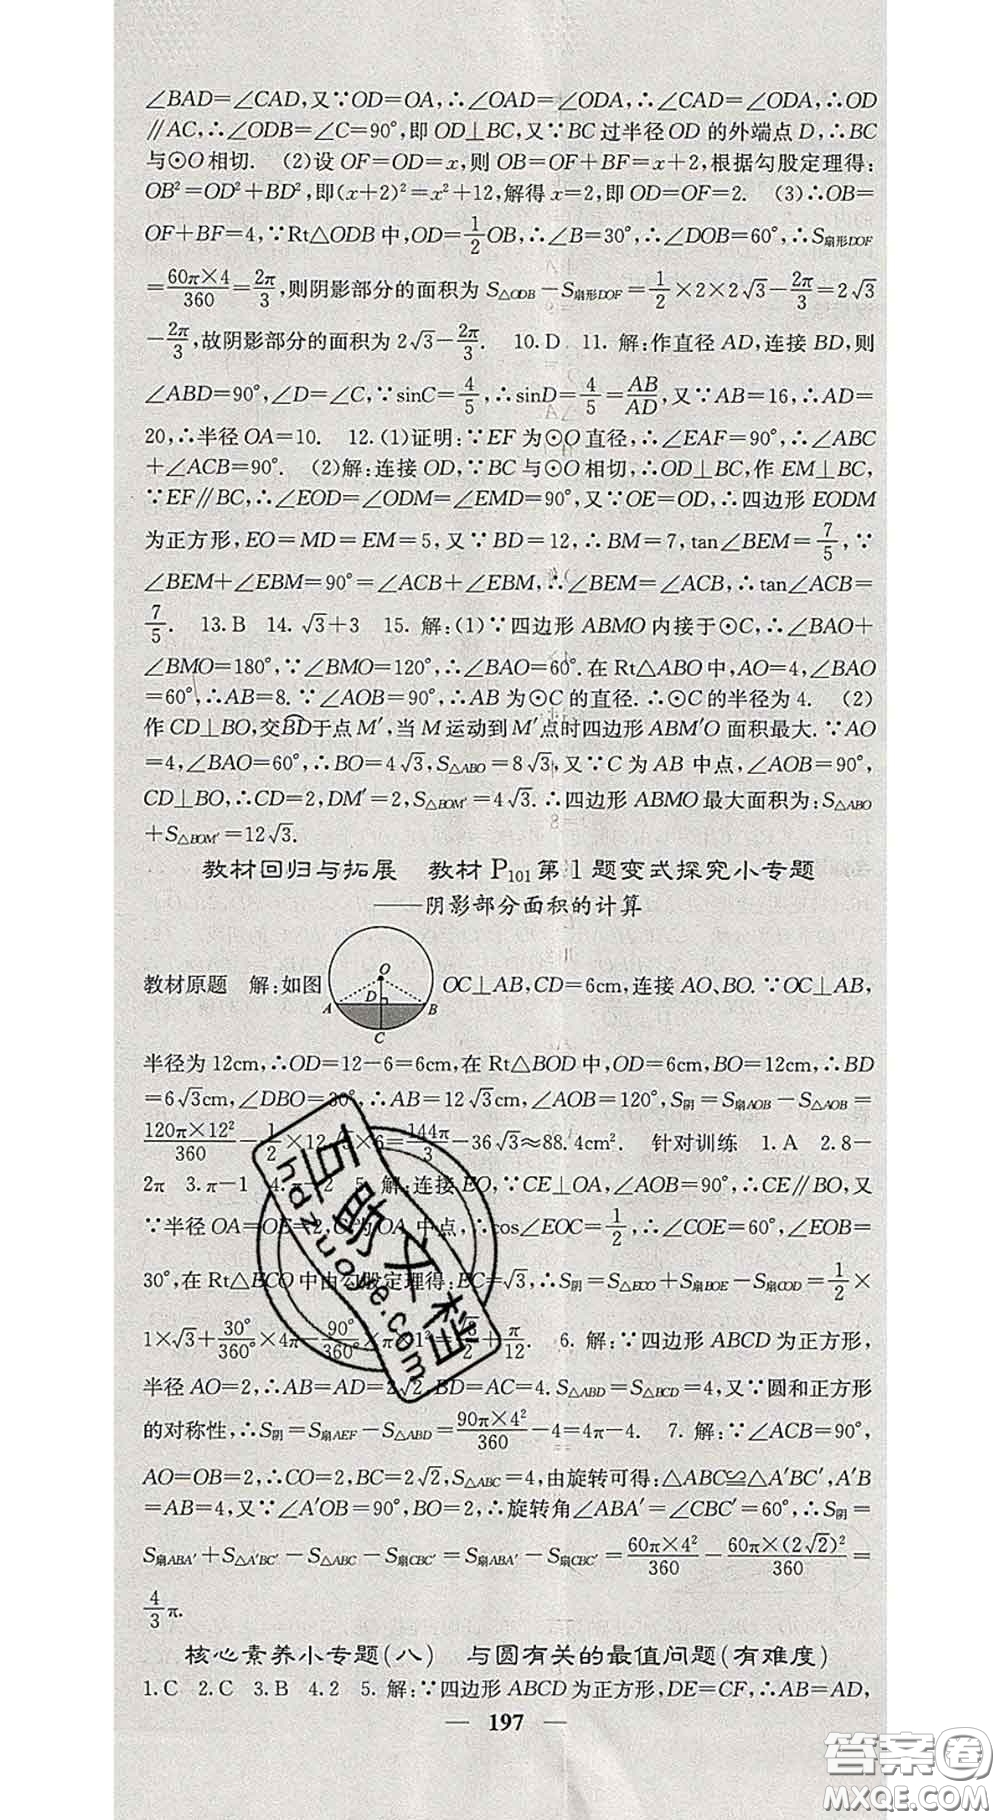 ∠BAD=∠CAD,又∵OD=OA,∴∠OAD=∠ODA,∴∠CAD=∠ODA,∴OD
∥AC,∴∠ODB=∠C=90°,即OD⊥BC,又∵BC过半径OD的外端点D,∴BC
与⊙O相切. (2)设OF=OD=x,则OB=OF+BF=x+2,根据勾股定理得:
OB²=OD²+BD²,即(x+2)²=x²+12,解得x=2,即OD=OF=2. (3)∴OB=
OF+BF=4,∵Rt△ODB中,OD=1/2OB,∴∠B=30°,∴∠DOB=60°,∴S扇形DOF
=60π×4/360=2π/3,则阴影部分的面积为S△ODB-S扇形DOF=1/2×2×2√3-2π/3=2√3
-2π/3,故阴影部分的面积为2√3-2π/3. 10.D 11.解:作直径AD,连接BD,则
∠ABD=90°,∠D=∠C,∵sinC=4/5,∴sinD=4/5=AB/AD,又∵AB=16,∴AD=
20,∴半径OA=10. 12.(1)证明:∵EF为⊙O直径,∴∠EAF=90°,∴∠ABC
+∠ACB=90°. (2)解:连接OD,∵BC与⊙O相切,∴OD⊥BC,作EM⊥BC,
∵EF∥BC,∴∠EOD=∠ODM=∠EMD=90°,又∵OE=OD,∴四边形EODM
为正方形,EO=MD=EM=5,又∵BD=12,∴BM=7,tan∠BEM=7/5,∵
∠BEM+∠EBM=90°=∠ACB+∠EBM,∴∠BEM=∠ACB,∴tan∠ACB=
7/5. 13.B 14.√3+3 15.解:(1)∵四边形ABMO内接于⊙C,∴∠BAO+
∠BMO=180°,∵∠BMO=120°,∴∠BAO=60°.在Rt△ABO中,AO=4,∠BAO
=60°,∴AB=8.∵∠AOB=90°,∴AB为⊙C的直径.∴⊙C的半径为4. (2)
作CD⊥BO,交BD于点M′,当M运动到M′点时四边形ABM′O面积最大.∵AO
=4,∠BAO=60°,∴BO=4√3,S△ABO=8√3,又∵C为AB中点,∠AOB=90°,
CD⊥BO,∴CD=2,DM′=2,S△BOM′=4√3.∴四边形ABMO最大面积为:S△ABO
+S△BOM′=12√3.
教材回归与拓展 教材P101第1题变式探究小专题
——阴影部分面积的计算
教材原题 解:如图 O D A B C OC⊥AB,CD=6cm,连接AO、BO.∵OC⊥AB,
半径为12cm,∴OD=12-6=6cm,在Rt△BOD中,OD=6cm,BO=12cm,∴BD
=6√3cm,∠DBO=30°,∴AB=12√3cm,∠AOB=120°,S阴=S扇AOB-S△AOB=
120π×12²/360-1/2×12√3×6=144π/3-36√3≈88.4cm². 针对训练 1.A 2.8-
2π 3.π-1 4.π-2 5.解:连接EO,∵CE⊥OA,∠AOB=90°,∴CE∥BO,又
∵半径OA=OE=2,C为OA中点,∴cos∠EOC=1/2,∴∠COE=60°,∠EOB=
30°,在Rt△ECO中由勾股定理得:EC=√3,∴S阴=S△ECO+S扇BOE-S扇COD=1/2×
1×√3+30°/360°×4π-90°/360°×π×1²=√3/2+π/12. 6.解:∵四边形ABCD为正方形,
半径AO=2,∴AB=AD=2√2,BD=AC=4.S△ABD=S△BCD=4,又∵圆和正方形
的对称性,∴S阴=S扇AEF-S△ABD=90π×4²/360-4=4π-4. 7.解:∵∠ACB=90°,
AO=OB=2,∴CO=2,BC=2√2,S△ABC=4,由旋转可得:△ABC≌△A′BC′,A′B
=AB=4,又∵∠A′OB=90°,BO=2,∴旋转角∠ABA′=∠CBC′=60°,∴S阴=
S扇ABA′+S△A′BC′-S△ABC-S扇CBC′=S扇ABA′-S扇CBC′=60π×4²/360-60π×(2√2)²/360=
4/3π.
核心素养小专题(八) 与圆有关的最值问题(有难度)
1.C 2.C 3.B 4.2 5.解:∵四边形ABCD为正方形,DE=CF,∴AB=AD,
— 197 —
互助文档
hdzuoye.com
答案圈
MXQE.COM